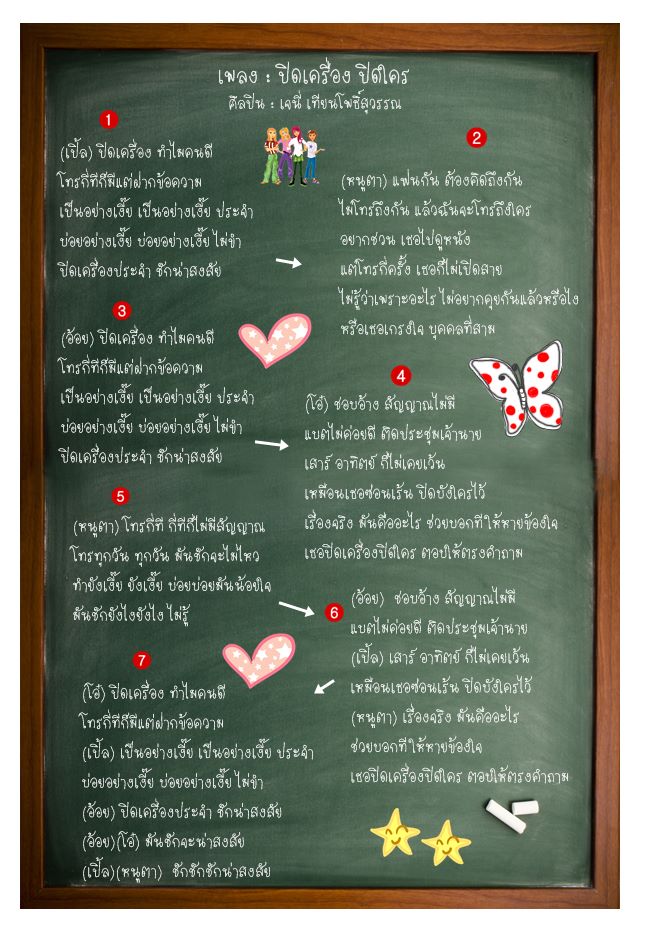 เพลง : ปิดเครื่อง ปิดใคร
ศิลปิน : เจนี่ เทียนโพธิ์สุวรรณ
1
(เปิ้ล) ปิดเครื่อง ทำไมคนดี
โทรกี่ทีก็มีแต่ฝากข้อความ
เป็นอย่างเงี๊ย เป็นอย่างเงี๊ย ประจำ
บ่อยอย่างเงี๊ย บ่อยอย่างเงี๊ย ไม่ขำ
ปิดเครื่องประจำ ชักน่าสงสัย
2
(หนูตา) แฟนกัน ต้องคิดถึงกัน
ไม่โทรถึงกัน แล้วฉันจะโทรถึงใคร
อยากชวน เธอไปดูหนัง
แต่โทรกี่ครั้ง เธอก็ไม่เปิดสาย
ไม่รู้ว่าเพราะอะไร ไม่อยากคุยกันแล้วหรือไง
หรือเธอเกรงใจ บุคคลที่สาม
3
(อ้อย) ปิดเครื่อง ทำไมคนดี
โทรกี่ทีก็มีแต่ฝากข้อความ
เป็นอย่างเงี๊ย เป็นอย่างเงี๊ย ประจำ
บ่อยอย่างเงี๊ย บ่อยอย่างเงี๊ย ไม่ขำ
ปิดเครื่องประจำ ชักน่าสงสัย
4
(โอ๋) ชอบอ้าง สัญญาณไม่มี
แบตไม่ค่อยดี ติดประชุมเจ้านาย
เสาร์ อาทิตย์ ก็ไม่เคยเว้น
เหมือนเธอซ่อนเร้น ปิดบังใครไว้
เรื่องจริง มันคืออะไร ช่วยบอกทีให้หายข้องใจ
เธอปิดเครื่องปิดใคร ตอบให้ตรงคำถาม
5
(หนูตา) โทรกี่ที กี่ทีก็ไม่มีสัญญาณ
โทรทุกวัน ทุกวัน มันชักจะไม่ไหว
ทำยังเงี๊ย ยังเงี๊ย บ่อยบ่อยมันน้อยใจ
มันชักยังไงยังไง ไม่รู้
6
(อ้อย) ชอบอ้าง สัญญาณไม่มี
แบตไม่ค่อยดี ติดประชุมเจ้านาย
(เปิ้ล) เสาร์ อาทิตย์ ก็ไม่เคยเว้น
เหมือนเธอซ่อนเร้น ปิดบังใครไว้
(หนูตา) เรื่องจริง มันคืออะไร
ช่วยบอกทีให้หายข้องใจ
เธอปิดเครื่องปิดใคร ตอบให้ตรงคำถาม
7
(โอ๋) ปิดเครื่อง ทำไมคนดี
โทรกี่ทีก็มีแต่ฝากข้อความ
(เปิ้ล) เป็นอย่างเงี๊ย เป็นอย่างเงี๊ย ประจำ
บ่อยอย่างเงี๊ย บ่อยอย่างเงี๊ย ไม่ขำ
(อ้อย) ปิดเครื่องประจำ ชักน่าสงสัย
(อ้อย)(โอ๋) มันชักจะน่าสงสัย
(เปิ้ล)(หนูตา) ชักชักชักน่าสงสัย